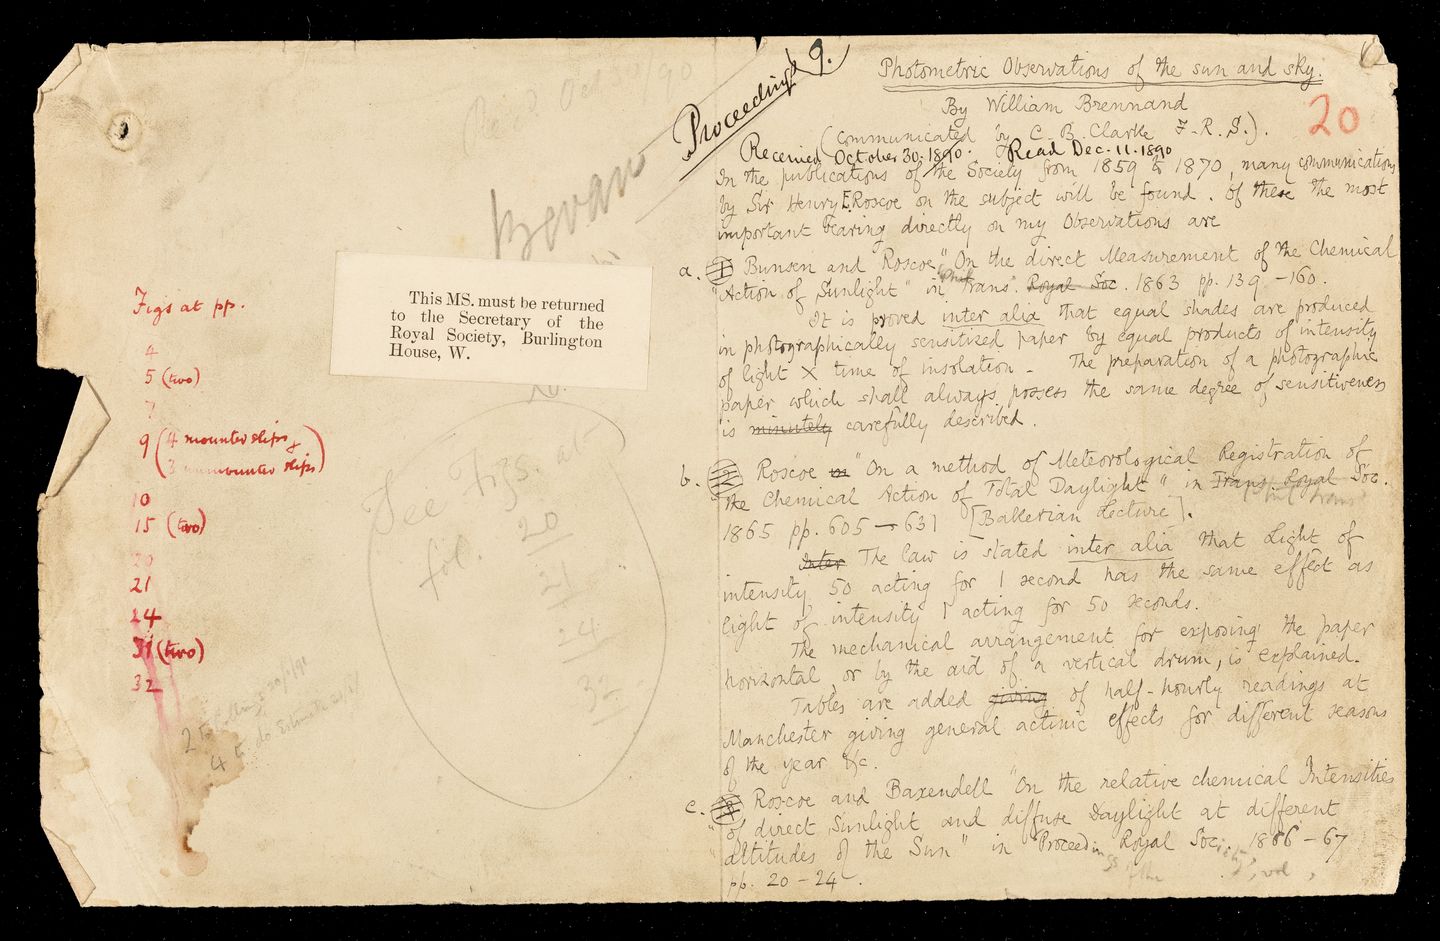 Rec'd Oct 30/90
Bevan
This MS. must be returned
to the Secretary of the
Royal Society, Burlington
House, W.
Figs at pp.
4
5 (two)
7
9 (4 mounted slips &
3 unmounted slips)
10
15 (two)
20
21
24
31 (two)
32
See Figs. at
fol. 20
21
24
32
Proceedings
9.
20
Photometric Observations of the sun and sky.
By William Brennand
(communicated by C. B. Clarke F.R.S.).
Received October 30. 1890. Read Dec. 11. 1890
In the publications of the Society from 1859 to 1870, many communications
by Sir Henry E. Roscoe on the subject will be found. Of these the most
important bearing directly on my Observations are
a. Bunsen and Roscoe "On the direct Measurement of the Chemical
"Action of Sunlight" in Phil Trans. Royal Soc. 1863 pp. 139 – 160.
It is proved inter alia that equal shades are produced
in photographically sensitized paper by equal products of intensity
of light × time of insolation – The preparation of a photographic
paper which shall always possess the same degree of sensitiveness
is minutely carefully described.
b. Roscoe in "On a method of Meteorological Registration of
the Chemical Action of Total Daylight" in Trans. Royal Soc.
Phil Trans
1865 pp. 605 – 631 [Bakerian Lecture].
Inter The law is stated inter alia that Light of
intensity 50 acting for 1 second has the same effect as
light of intensity 1 acting for 50 seconds.
The mechanical arrangement for exposing the paper
horizontal, or by the aid of a vertical drum, is explained.
Tables are added giving of half-hourly readings at
Manchester giving general actinic effects for different seasons
of the year &c.
c. Roscoe and Baxendell "On the relative chemical Intensities
"of direct Sunlight and diffuse Daylight at different
"altitudes of the Sun" in Proceedings of the Royal Society, vol, 1866 – 67
pp. 20 – 24.